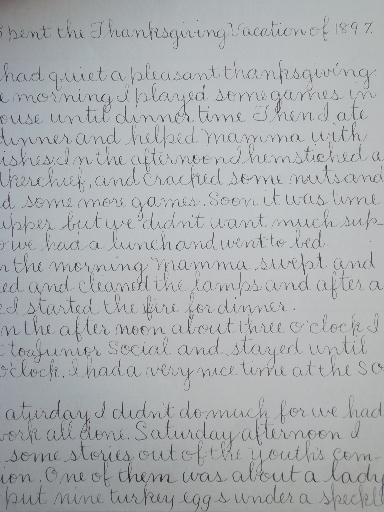 spent the Thanksgiving Vacation of 1897.
had quiet a pleasant thanksgiving.
morning I played some games in
ouse until dinner time. Then I ate
dinner and helped Mamma with
ishes. In the afternoon I hemstiched a
kerchief, and cracked some nuts and
d some more games. Soon it was time
upper but we didn't want much sup-
we had a lunch and went to bed.
n the morning Mamma swept and
ed and cleaned the lamps and after a
I started the fire for dinner.
n the after noon about three o'clock I
to a Junior Social and stayed until
o'clock. I had a very nice time at the so
aturday I didn't do much for we had
work all done. Saturday afternoon I
some stories out of the Youth's com-
ion. One of them was about a lady
put nine turkey eggs under a speckll